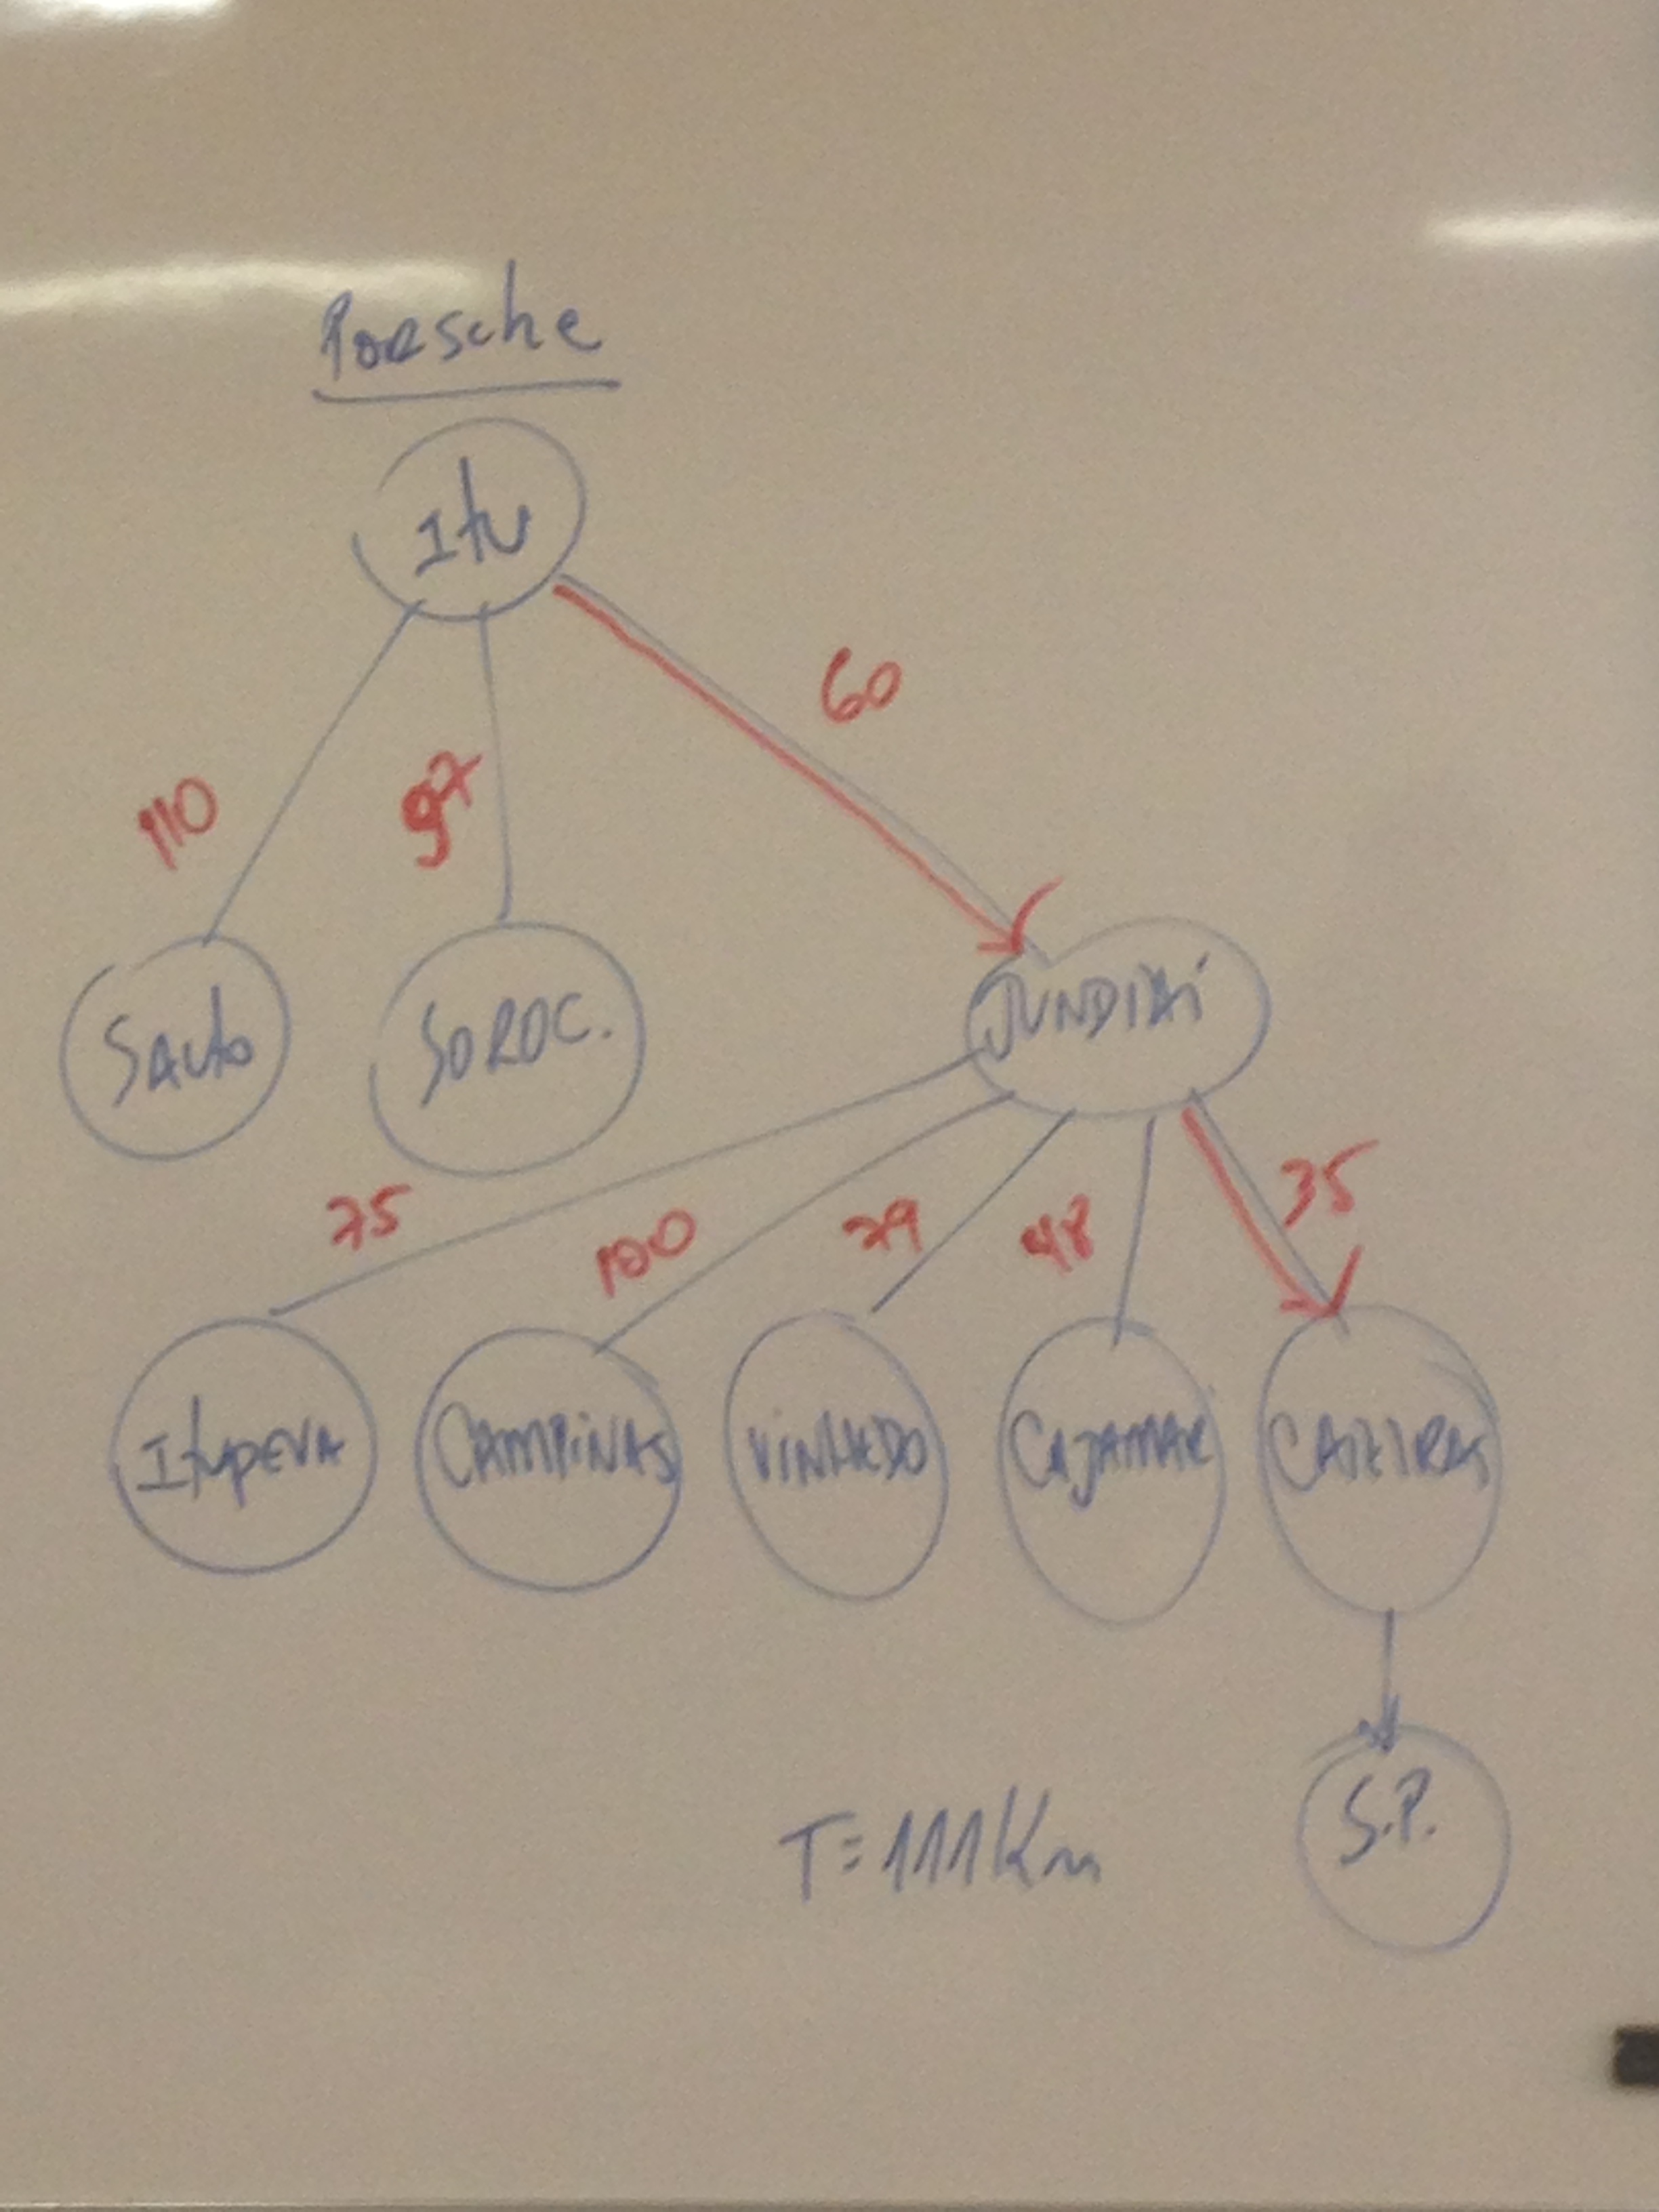 Porsche
Itu
60
110
97
Salto
SOROC.
JUNDIAÍ
75
100
79
48
35
Itupeva
CAMPINAS
VINHEDO
CAJAMAR
CAIEIRAS
S.P.
T=111Km